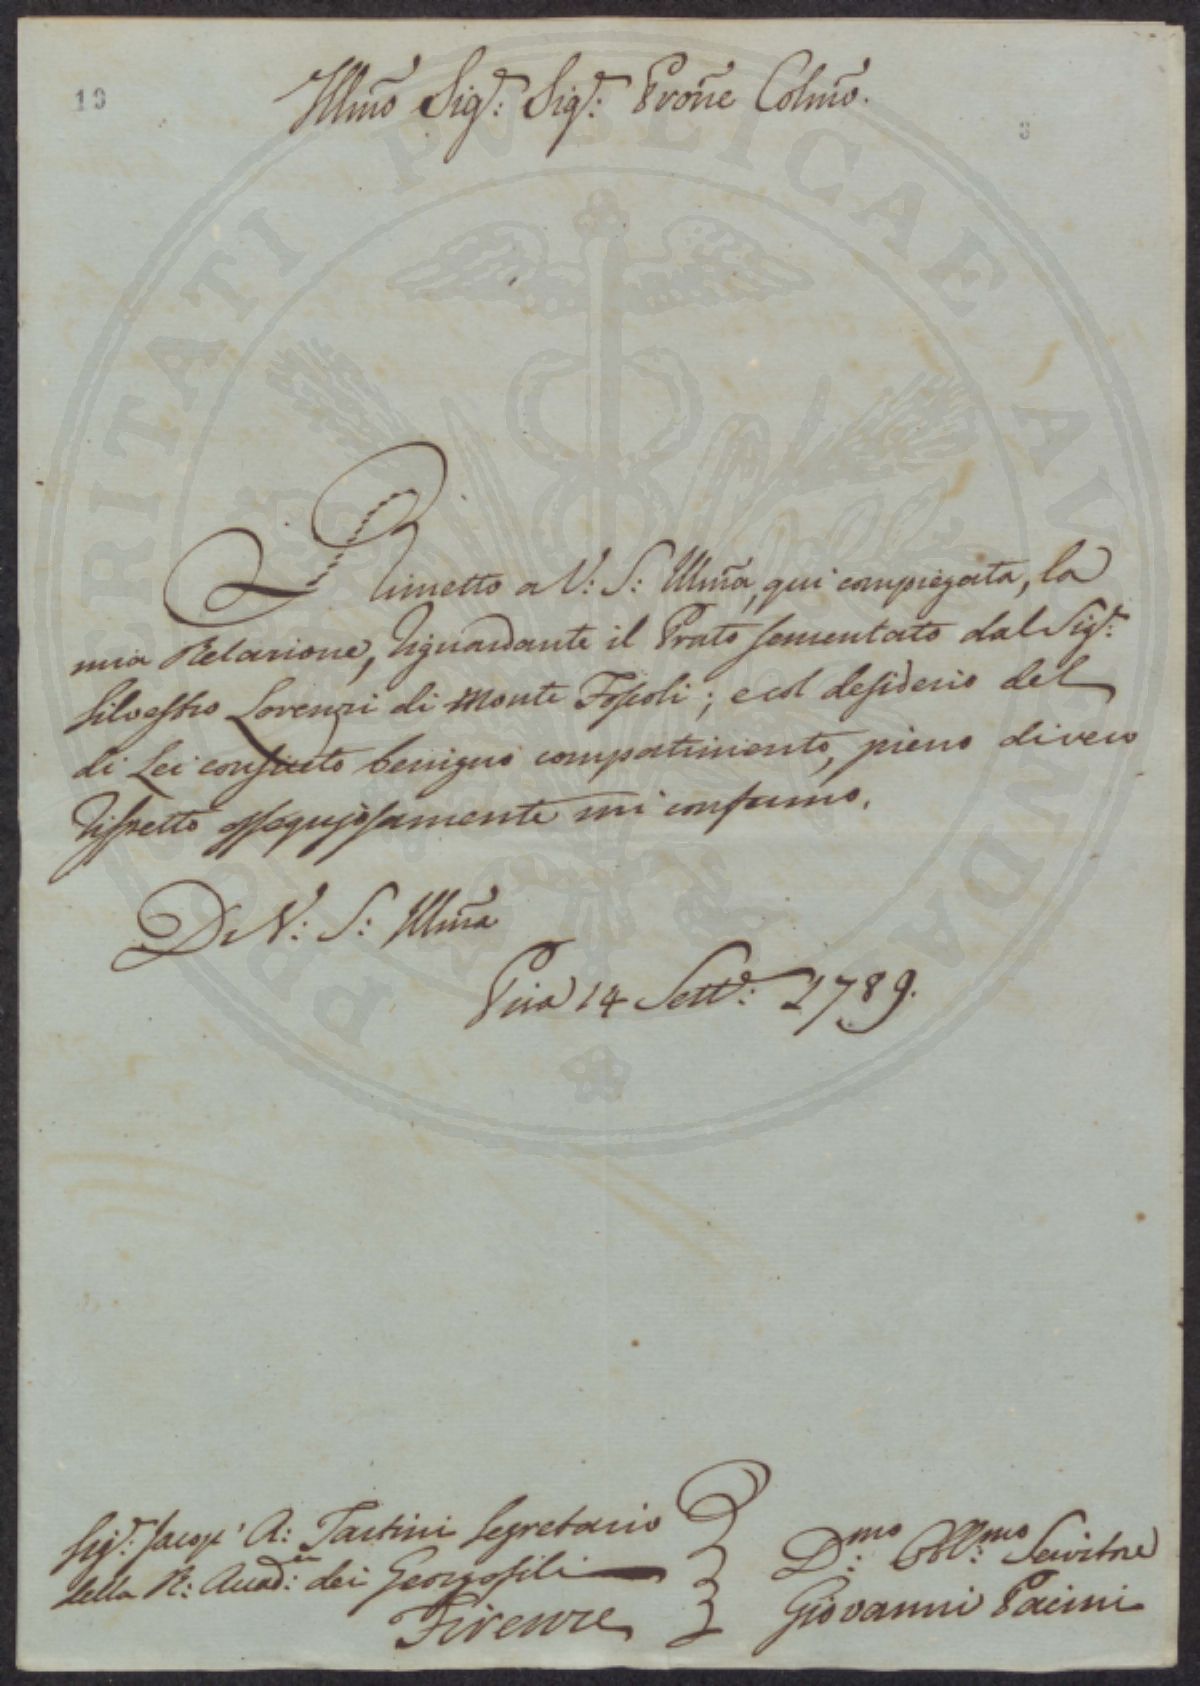 19
3
Illmo Sig.r: Sig.r: Prone Colmo.
Rimetto a V: S: Illma, qui compiegata, la
mia Relazione, riguardante il Prato sementato dal Sig.r:
Silvestro Lorenzi di Monte Foscoli; e col desiderio del
di Lei consueto benigno compatimento, pieno di vero
rispetto ossequiosamente mi confermo.
Di V: S: Illma
14 Sett.e: 1789.
Sig.r: Jacopo A: Tartini Segretario
della R: Accad.ia: dei Georgofili
Firenze
D.mo: Obbl.mo: Servitore
Giovanni Pacini
PROSPERITATI PUBLICAE AUGENDAE